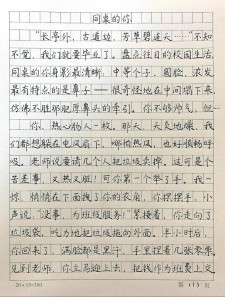 同桌的你
“长亭外，古道边，芳草碧连天……”不知
不觉，我们就要毕业了。盘点往日的校园生活，
同桌的你身影最清晰，中等个子，圆脸，浓发，
最有特点的是鼻子——很奇怪地在中间塌下来，
仿佛不胜那肥厚鼻头的牵引。你不够帅气，但
你，热心助人一枚。那天，天炎地燥，我
们都想躲在电风扇下，哪怕热风，也好顺畅呼
吸。老师说要请几个人把垃圾卖掉。这可是个
苦差事，又热又脏！可你第一个举了手。我一
惊，悄悄在下面拽了你的衣角，你摆摆手，小
声说，“没事，为班级服务！”紧接着，你走向了
垃圾袋，吃力地把垃圾拖向外面。半小时后，
你回来了，满脸都是黑汗，手里捏着几张零票。
见到老师，你立马迎上去，把钱作为班费上交
20×15=300
第（1）页